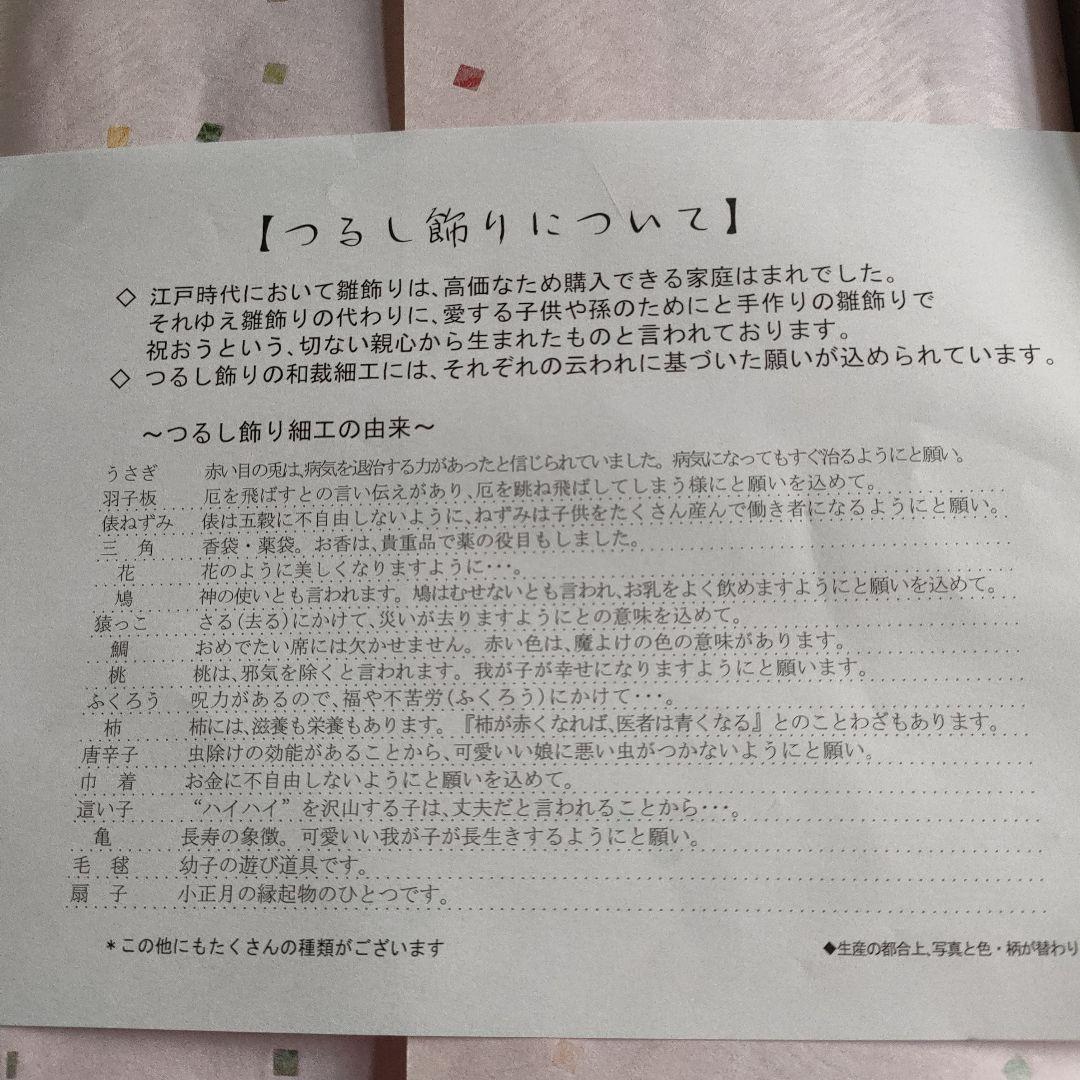 【つるし飾りについて】
◇ 江戸時代において雛飾りは、高価なため購入できる家庭はまれでした。
それゆえ雛飾りの代わりに、愛する子供や孫のためにと手作りの雛飾りで
祝おうという、切ない親心から生まれたものと言われております。
◇ つるし飾りの和裁細工には、それぞれの云われに基づいた願いが込められています。
～つるし飾り細工の由来～
うさぎ 赤い目の兎は、病気を退治する力があったと信じられていました。病気になってもすぐ治るようにと願い。
羽子板 厄を飛ばすとの言い伝えがあり、厄を跳ね飛ばしてしまう様にと願いを込めて。
俵ねずみ 俵は五穀に不自由しないように、ねずみは子供をたくさん産んで働き者になるようにと願い。
三 角 香袋・薬袋。お香は、貴重品で薬の役目もしました。
花 花のように美しくなりますように･･･。
鳩 神の使いとも言われます。鳩はむせないとも言われ、お乳をよく飲めますようにと願いを込めて。
猿っこ さる(去る)にかけて、災いが去りますようにとの意味を込めて。
鯛 おめでたい席には欠かせません。赤い色は、魔よけの色の意味があります。
桃 桃は、邪気を除くと言われます。我が子が幸せになりますようにと願います。
ふくろう 呪力があるので、福や不苦労(ふくろう)にかけて･･･。
柿 柿には、滋養も栄養もあります。『柿が赤くなれば、医者は青くなる』とのことわざもあります。
唐辛子 虫除けの効能があることから、可愛いい娘に悪い虫がつかないようにと願い。
巾 着 お金に不自由しないようにと願いを込めて。
這い子 “ハイハイ”を沢山する子は、丈夫だと言われることから･･･。
亀 長寿の象徴。可愛いい我が子が長生きするようにと願い。
毛 毬 幼子の遊び道具です。
扇 子 小正月の縁起物のひとつです。
＊この他にもたくさんの種類がございます
◆生産の都合上、写真と色・柄が替わり